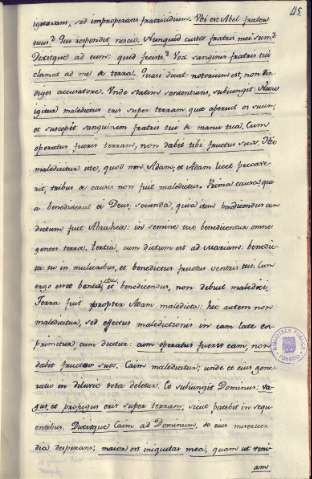 45
ignorans, sed improperans fratricidium. Ubi est Abel frater
tuus? Qui respondit nescio. Numquid custos fratris mei sum?
Dixitque ad eum: quid fecisti? Vox sanguinis fratris tui
clamat ad me de terra. Quasi dicat notorium est, non in-
diget accusatore. Unde statim sententians, subiungit. Nunc
igitur maledictus eris super terram, quae aperuit os suum,
et suscepit sanguinem fratris tui de manu tua. Cum
operatus fueris terram, non dabit tibi fructus suos. Hic
maledicitur iste, quod non Adam, et Adam licet peccave-
rit, tribus de causis non fuit maledictus. Prima causa quia
benedixerat ei Deus, secunda, quia
dictum fuit Abrahae: in semine tuo benedicentur omnes
gentes terrae, tertia, cum dictum est ad Mariam: benedic-
ta tu in mulieribus, et benedictus fructus ventris tui. Cum
ergo esset benedicendus, non debuit maledici.
Terra fuit propter Adam maledicta: hic autem non
maledicitur, sed effectus maledictionis in eam late ex-
primitur, cum dicitur: cum operatus fueris eam, non
dabit fructus suos. Cain maledicitur; unde et eius gene-
ratio in diluvio tota deletur. Et subiungit Dominus: va-
gus, et profugus eris super terram, sicut patebit in sequ-
entibus. Dixitque Cain ad Dominum, de eius misericor-
dia desperans; maior est iniquitas mea, quam ut veni-
am